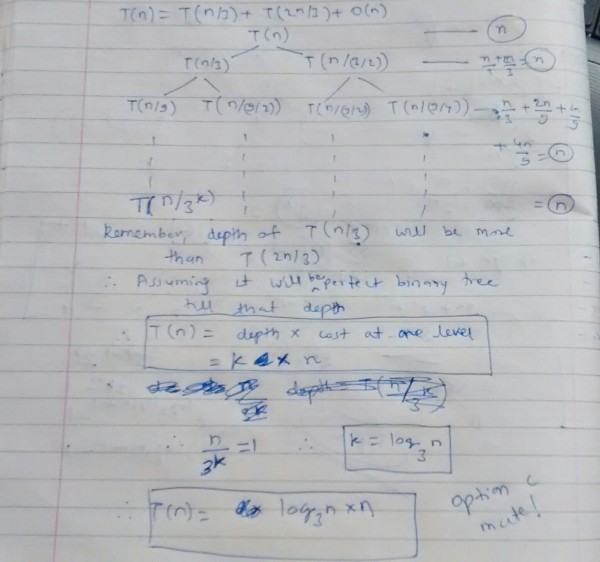 T(n) = T(n/3) + T(2n/3) + O(n)
T(n) — n
T(n/3) T(n/(3/2)) — n/3 + 2n/3 = n
T(n/9) T(n/(9/2)) T(n/(9/2)) T(n/(9/4)) — + 2n/9 +
+ 4n/9 = n
T(n/3^k) = n
Remember, depth of T(n/3) will be more
than T(2n/3)
∴ Assuming it will be perfect binary tree
till that depth
∴ T(n) = depth × cost at one level
= k × n
∴ n/3^k = 1 ∴ k = log₃ n
∴ T(n) = log₃n × n
option c
mate!